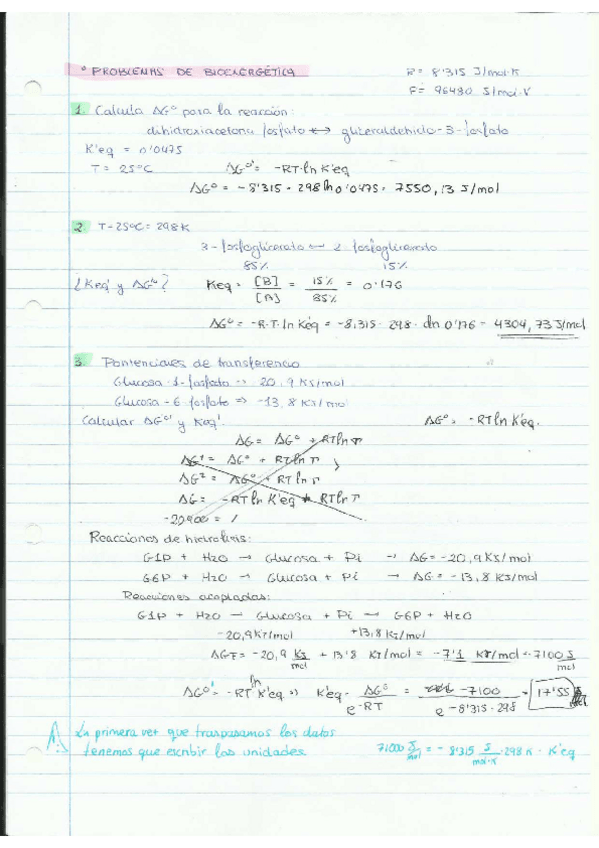 ° PROBLEMAS DE BIOENERGÉTICA
R= 8'315 J/mol·K
F= 96480 J/mol·V
1. Calcula ΔG° para la reacción:
dihidroxiacetona fosfato ↔ gliceraldehido-3-fosfato
K'eq = 0'0475
T = 25°C ΔG°' = -RT·ln K'eq
ΔG° = -8'315 · 298 ln 0'0475 = 7550,13 J/mol
2. T=25°C = 298K
3-fosfoglicerato ↔ 2-fosfoglicerato
85% 15%
¿Keq' y ΔG°'? Keq = [B]/[A] = 15%/85% = 0'176
ΔG° = -R·T·ln K'eq = -8,315 · 298 · ln 0'176 = 4304,73 J/mol
3. Pontenciales de transferencia
Glucosa-1-fosfato → -20,9 KJ/mol
Glucosa-6-fosfato ⇒ -13,8 KJ/mol
Calcular ΔG°' y Keq'. ΔG° = -RT ln K'eq.
ΔG = ΔG° + RT ln r
ΔG¹ = ΔG° + RT ln r
ΔG² = ΔG° + RT ln r
ΔG = -RT ln K'eq + RT ln r
-20900 = /
Reacciones de hidrolisis:
G1P + H2O → Glucosa + Pi → ΔG = -20,9 KJ/mol
G6P + H2O → Glucosa + Pi → ΔG = -13,8 KJ/mol
Reacciones acopladas:
G1P + H2O → Glucosa + Pi → G6P + H2O
-20,9 KJ/mol +13,8 KJ/mol
ΔGT = -20,9 KJ/mol + 13'8 KJ/mol = -7'1 KJ/mol = -7100 J/mol
ΔG°' = -RT ln K'eq ⇒ K'eq = ΔG°/e-RT = -7100/e-8'315·298 = 17'55
La primera vez que traspasamos los datos
tenemos que escribir las unidades. 71000 J/mol = -8'315 J/mol·K · 298 K · K'eq